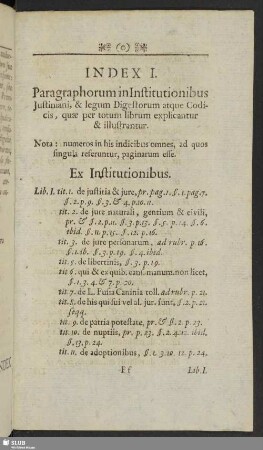 (o)
INDEX I.
Paragraphorum in Institutionibus
Justiniani, & legum Digestorum atque Codi-
cis, quæ per totum librum explicantur
& illustrantur.
Nota: numeros in his indicibus omnes, ad quos
singula referuntur, paginarum esse.
Ex Institutionibus.
Lib. I. tit. 1. de justitia & jure, pr. pag. 1. §. 1. pag. 7.
§. 2. p. 9. §. 3. & 4. p. 10. 11.
tit. 2. de jure naturali, gentium & civili,
pr. & §. 2. p. 11. §. 3. p. 13. §. 5. p. 14. §. 6.
ibid. §. 11. p. 15. §. 12. p. 16.
tit. 3. de jure personarum, ad rubr. p. 16.
§. 1. ib. §. 3. p. 19. §. 4. ibid.
tit. 5. de libertinis, §. 3. p. 19.
tit. 6. qui & ex quib. caus. manum. non licet,
§. 1. 3. 4. & 7. p. 20.
tit. 7. de L. Fusia Caninia toll. ad rubr. p. 21.
tit. 8. de his qui sui vel al. jur. sunt, §. 2. p. 21.
seqq.
tit. 9. de patria potestate, pr. & §. 2. p. 23.
tit. 10. de nuptiis, pr. p. 23. §. 2. 4. 12. ibid.
§. 13. p. 24.
tit. 11. de adoptionibus, §. 1. 3. 10. 12. p. 24.
Ff Lib. I.
SLUB